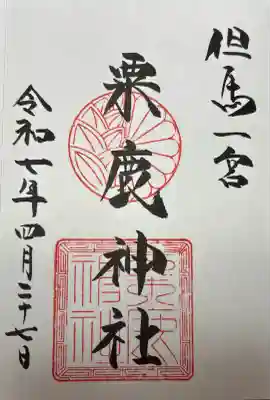 但馬一宮
粟鹿神社
令和七年四月二十七日